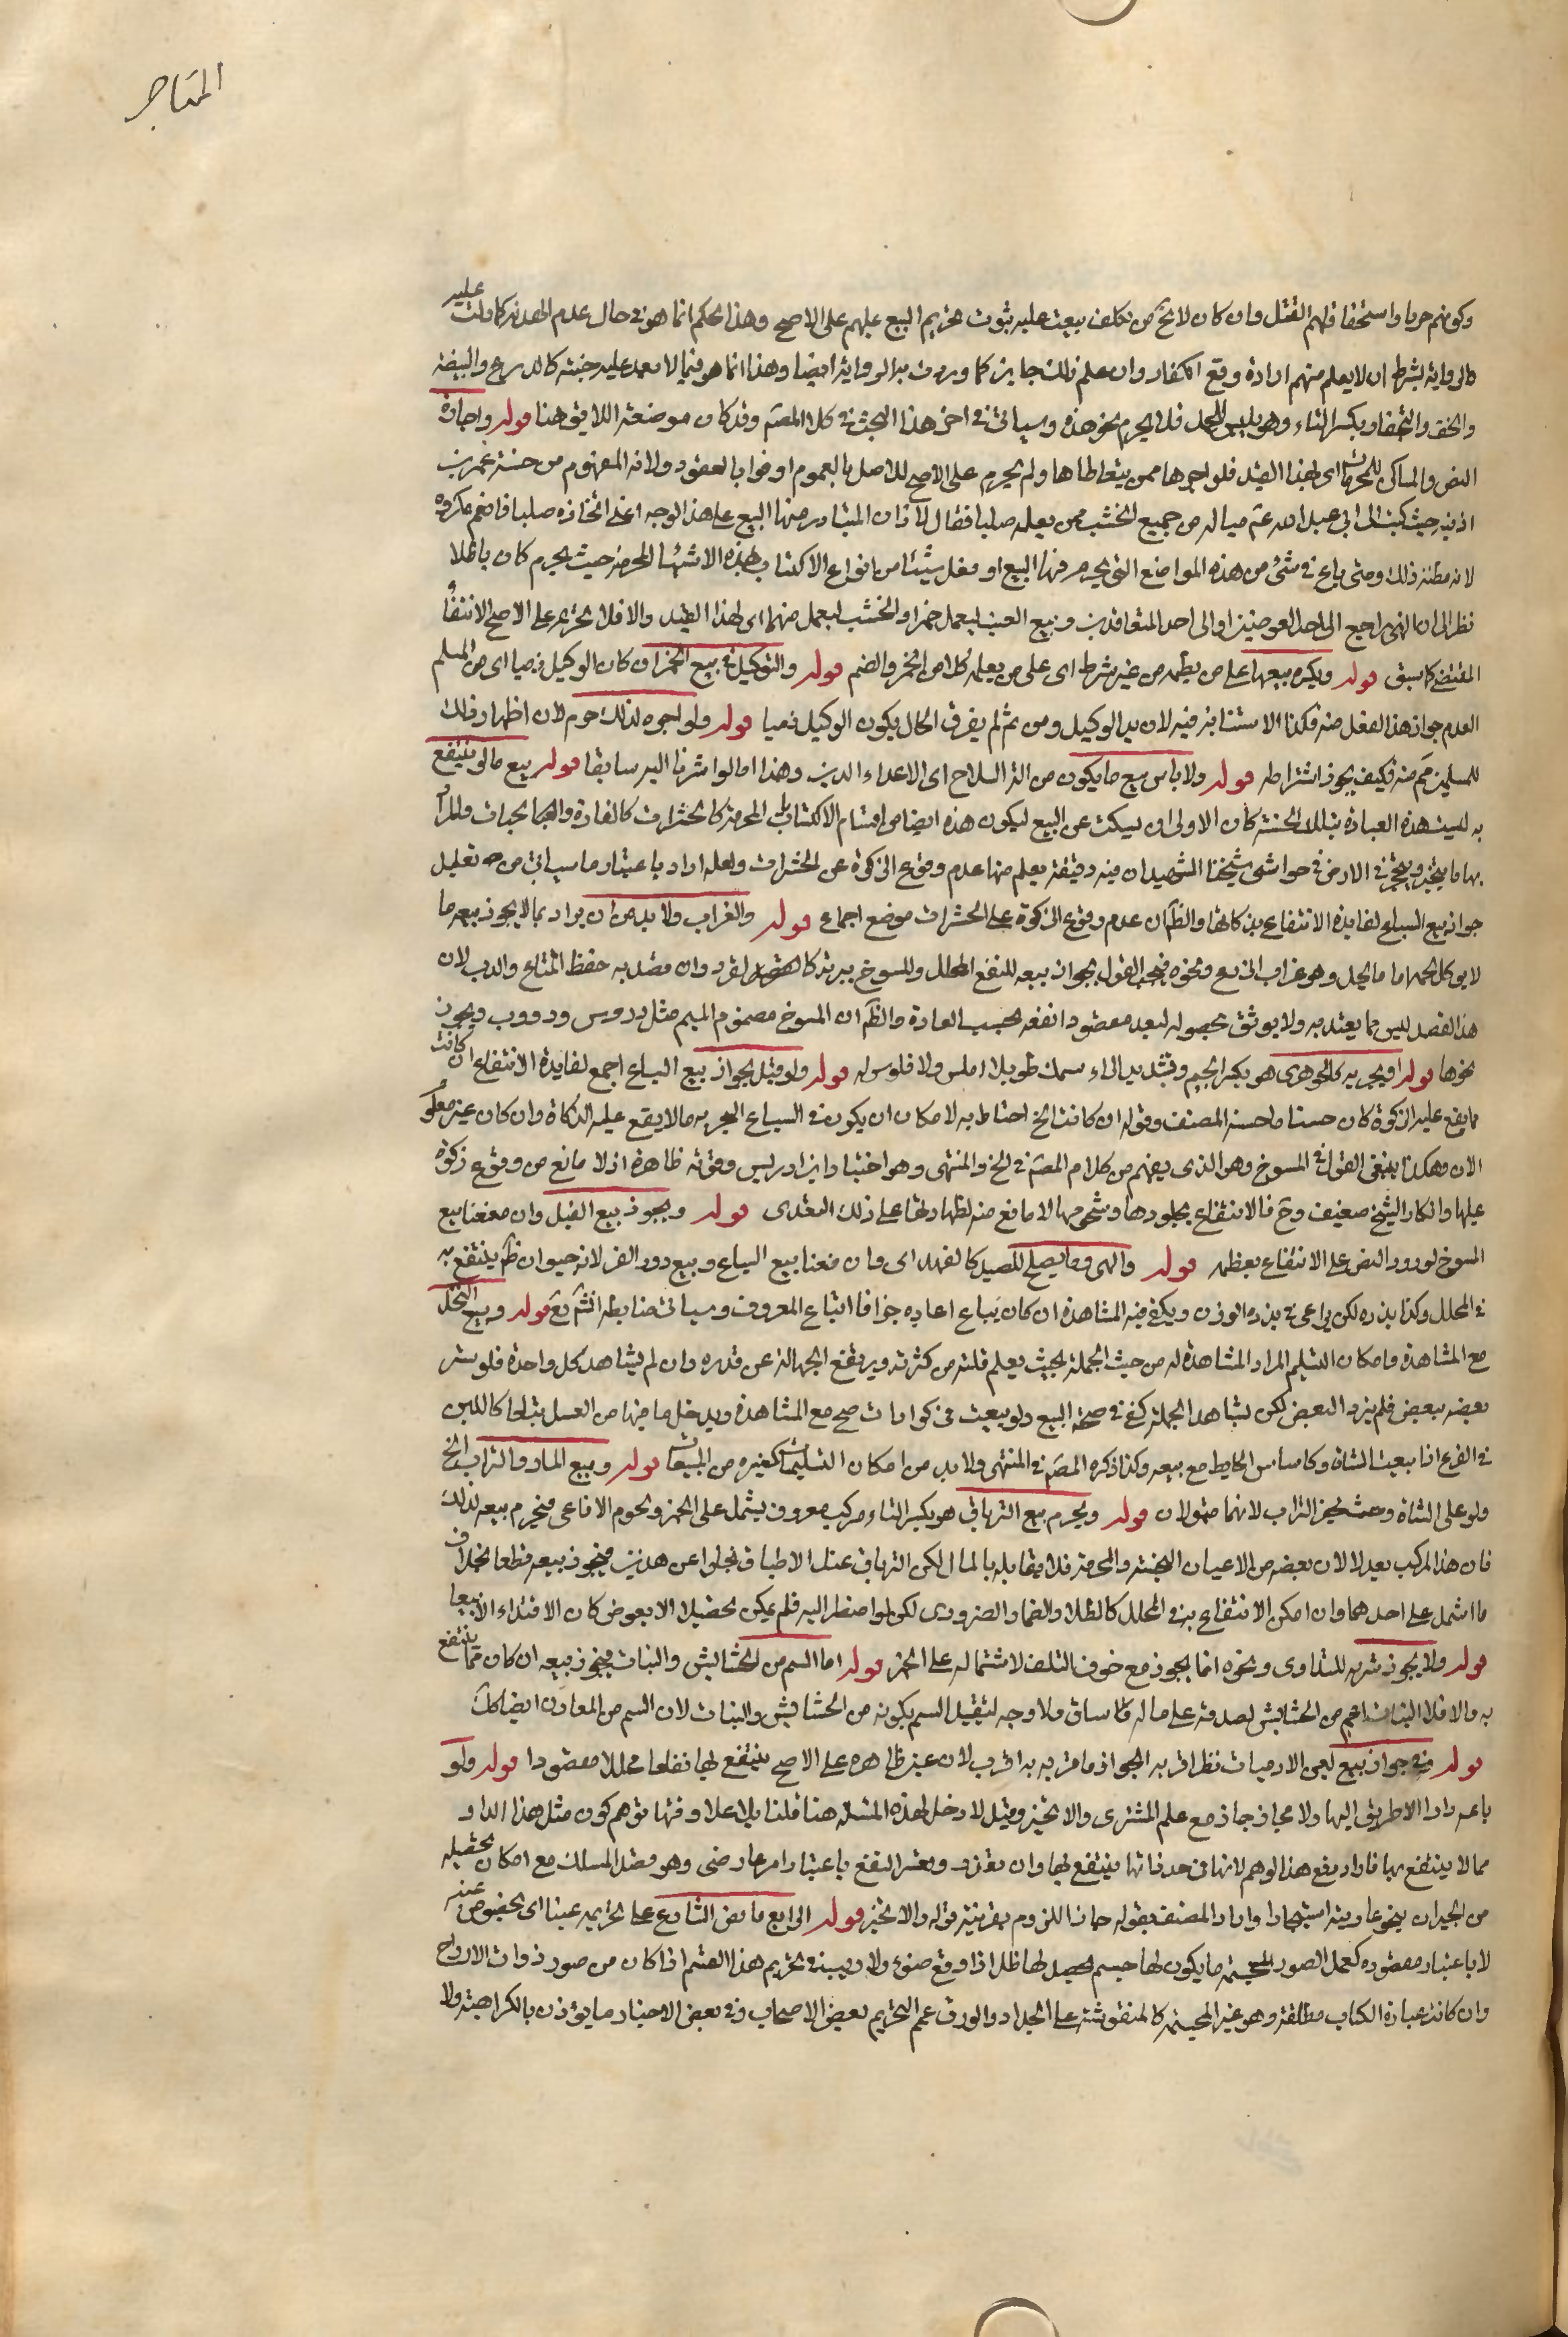 المتاجر
وكونهم حربا واستحقاقهم القتل وان كان لا يخ من تكلف يبعث عليه ثبوت تحريم البيع عليهم على الاصح وهذا الحكم انما هو في حال عدم الهدنة كما دلت عليه
الرواية بشرط ان لا يعلم منهم ارادة وقع الكفار وان علم ذلك جاز كما وردت به الرواية ايضا وهذا انما هو فيما لا يعد عليه جنة كالدرع والبيضة
والخف والتجفاف بكسر التاء وهو يلبس للخيل فلا يحرم نحو هذه وسياتي في اخر هذا البحث في كلام المصنف وقد كان موضعه اللايق هنا قوله واجارة
السفن والمساكن للمحرمات اى لهذا القيد فلو اجرها ممن يتعاطاها ولم يحرم على الاصح للاصل بالعموم اوفوا بالعقود ولانه المفهوم من حسنة عمر بن
اذينة حيث كتب الى ابي عبد الله عم ميا له من جميع الخشب ممن يعمله صلبا فقال لا اذ ان المتبادر منها البيع على هذا الوجه اعنى اتخاذه صلبا فا مكروه
لانه مظنة ذلك ومتى باع في شئ من هذه المواضع التي يحرم فيها البيع او فعل شيئا من انواع الاكتساب بهذه الاشياء المحرمة حيث يحرم كان باطلا
نظرا الى ان النهي راجع الى احد العوضين او الى احد المتعاقدين وبيع العنب ليعمل خمرا والخشب ليعمل صنما اى لهذا القيد والا فلا تحريم على الاصح لانتفاء
المقتضى كما سبق قوله ويكره بيعهما على من يعمله من غير شرط اى على من يعمل كلا من الخمر والصنم قوله والتوكيل في بيع الخمر ان كان الوكيل ذميا اى من المسلم
العدم جواز هذا الفعل منه فكذا الاستنابة فيه لان يد الوكيل ومن ثم لم يفرق الحال بكون الوكيل ذميا قوله ولو اجره لذلك حرم لان اظهار ذلك
للمسلمين محرم منه فكيف يجوز اشتراطه قوله ولا باس ببيع ما يكون من آلة السلاح اى الاعداء الدين وهذا ما لو اشرنا اليه سابقا قوله بيع ما لا ينتفع
به ليست هذه العبارة بتلك الحسنة كان الاولى ان يسكت عن البيع ليكون هذه ايضا من اقسام الاكتساب المحرمة كالحشرات كالفارة والحيات والمراد
بها ما يتخذ ويحجز في الارض في حواشي شيخنا الشهيد ان فيه دقيقة يعلم منها عدم وقوع الزكوة عن الحشرات ولعله اراد باعتبار ما سياتي من تعليل
جواز بيع السباع لفايدة الانتفاع بذكاتها والظ ان عدم وقوع الزكوة على الحشرات موضع اجماع قوله والغراب ولا بد من ان يراد بما لا يجوز بيعه ما
لا يوكل لحمه اما ما يحل وهو غراب الزرع ونحوه فيجب القول بجواز بيعه للنفع المحلل والمسوخ برية كالقرد وان قصد به حفظ المتاع والدب لان
هذا القصد ليس مما يعتد به ولا يوثق بحصوله لبعد مقصودا نفعه بحسب العادة والظ ان المسوخ مضموم الميم مثل دروس ودووب ويجوز
نحوها قوله او بحرية كالجرى هو بكسر الجيم وتشديد الراء سمك طويل املس ولا فلوس له قوله ولو قيل بجواز بيع السباع اجمع لفايدة الانتفاع ان كانت
مما يقع عليه الزكوة كان حسنا ما حسنه المصنف وقوله ان كانت الخ احتاط به لامكان ان يكون في السباع البحرية ما لا يقع عليه الذكاة وان كان غير معلوم
الان وهكذا ينبغي القول في المسوخ وهو الذي يفهم من كلام المصنف في الخز والمنتهى وهو اختيار ابن ادريس وقوته ظاهرة اذ لا مانع من وقوع زكوة
عليها وانكار الشيخ ضعيف وح فالانتفاع بجلودها وشحومها لا مانع منه لطهارتها على ذلك التقدير قوله ويجوز بيع الفيل وان منعنا بيع
المسوخ لورود النص على الانتفاع بعظمه قوله والهر وما يصلح للصيد كالفهد اى وان منعنا بيع السباع وبيع دود القز لانه حيوان ظ ينتفع به
في المحلل وكذا بذره لكن يراعى في بذره الوزن ويكفي فيه المشاهدة ان كان يباع اعاده جزافا اتباع المعروف وسياتي ضابطه انشٓ تعٓ قوله وبيع النحل
مع المشاهدة وامكان التسليم المراد المشاهدة له من حيث الجملة بحيث يعلم قلته من كثرته ويرتفع الجهالة عن قدره وان لم يشاهد كل واحدة فلو ستر
بعضه ببعض فلم يزد البعض لكن بشاهد الجملة كفى في صحة البيع ولو بيعت في كوارات صح مع المشاهدة ويدخل ما فيها من العسل تبعا كاللبن
في الضرع اذا بيعت الشاة وكاساس الحايط مع بيعه وكذا ذكره المصنف في المنتهى ولا بد من امكان التسليم كغيره من المبيعات قوله وبيع الماء والتراب الخ
ولو على الشاة وحيث يحرز التراب لانهما متمولان قوله ويحرم بيع الترياق هو بكسر التاء مركب معروف يشتمل على الخمر ولحوم الافاعي فيحرم بيعه لذلك
فان هذا المركب بعد لا لان بعضه من الاعيان النجسة والمحرمة فلا يقابله بالمال لكن الترياق عند الاطباق تجلوا عن هذين فيجوز بيعه قطعا بخلاف
ما اشتمل على احدهما وان امكن الانتفاع به في المحلل كالطلاء والضماد الضروري لكن لو اضطر اليه فلم يمكن تحصيله الا بعوض كان الافتداء لا بيعا
قوله ولا يجوز شربه للتداوى ونحوه انما يجوز مع خوف التلف لاشتماله على الخمر قوله اما السم من الحشايش والنبات فيجوز بيعه ان كان مما ينتفع
به والا فلا النبات اعم من الحشايش لصدقه على ما له ساق ولا وجه لتقييد السم بكونه من الحشايش والنبات لان السم من المعادن ايضا كك
قوله وفي جواز بيع لبن الادميات نظر اقربه الجواز ما قربه به اقرب لان عين ظاهره على الاصح ينتفع بها نفعا محللا مقصودا قوله ولو
باعه دارا لا طريق اليها ولا مجاز جاز مع علم المشترى والا تخير وقيل لا دخل لهذه المسئلة هنا قلنا بلا علاوقتها توهم كون مثل هذا الدار
مما لا ينتفع بها فاراد رفع هذا الوهم لانها في حد ذاتها ينتفع بها وان تعذر وتعسر النفع باعتبار امر عارضي وهو فقد المسلك مع امكان تحصيله
من الجيران بنحو عارية استيجارا واراد المصنف بقوله جاز اللزوم بقرينة قوله والا تخير قوله الرابع ما نص الشارع على تحريمه عينا اى بخصوص عينه
لا باعتبار مقصوده كعمل الصور المجسمة ما يكون لها جسم يحصل لها ظل اذا وقع ضوء ولا ريب في تحريم هذا القسم اذا كان من صور ذوات الارواح
وان كانت عبارة الكتاب مطلقة وهو غير المجسمة كالمنقوشة على الجدار والورق عم التحريم بعض الاصحاب وفي بعض الاخبار ما يؤذن بالكراهية ولا